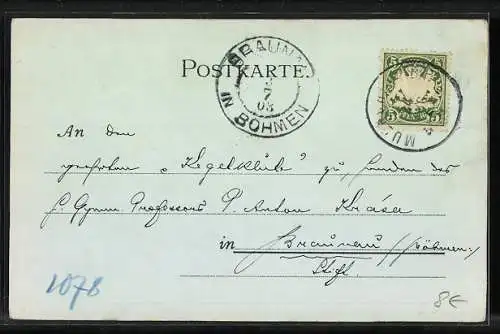 BRAUNAU
7
03
IN BÖHMEN
POSTKARTE.
5 5
MÜ
An den
geehrten „Kegelklub" zu Handen des
H. Gymn. Professors P. Anton Krása
in Braunau (Böhmen)
Stift
1078
8€